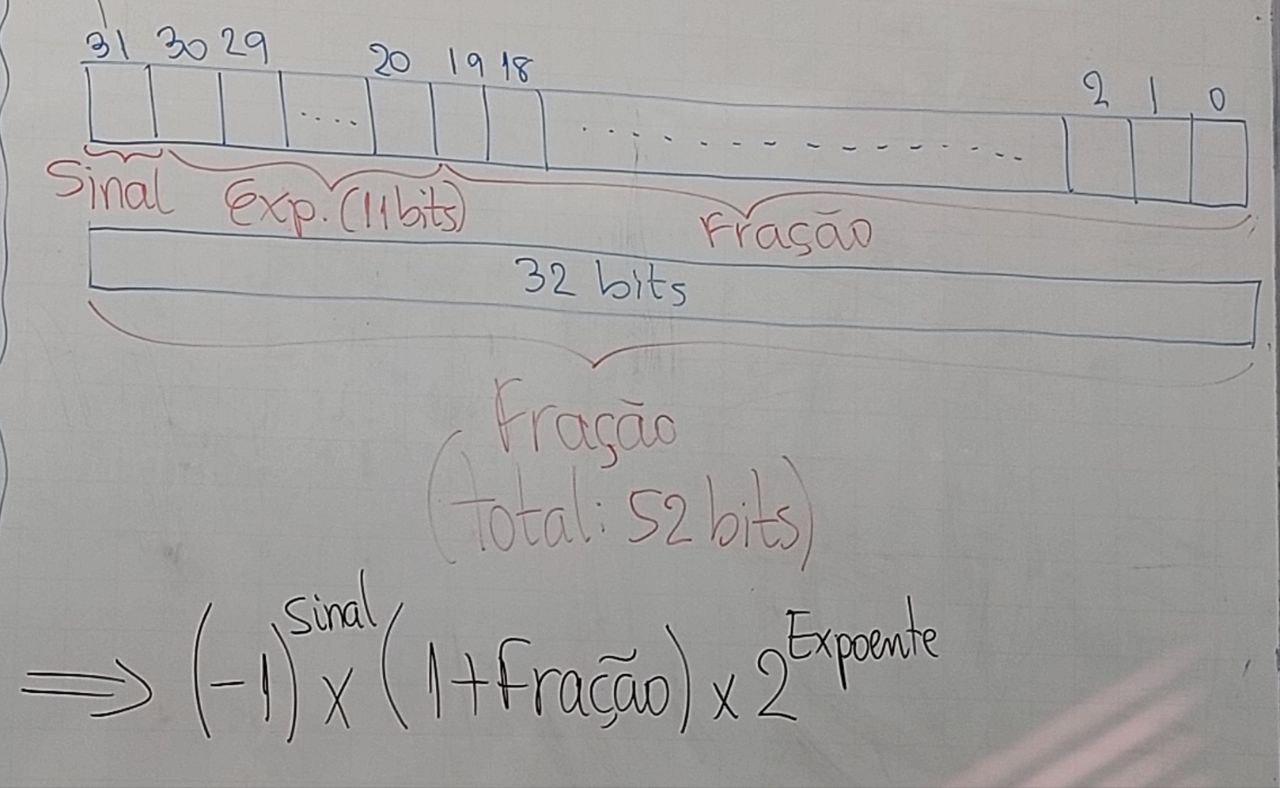 31 30 29 20 19 18 2 1 0
..... - - - - - - - - - ...
Sinal Exp. (11 bits) Fração
32 bits
Fração
(Total: 52 bits)
⟹ (-1)^Sinal x (1+Fração) x 2^Expoente